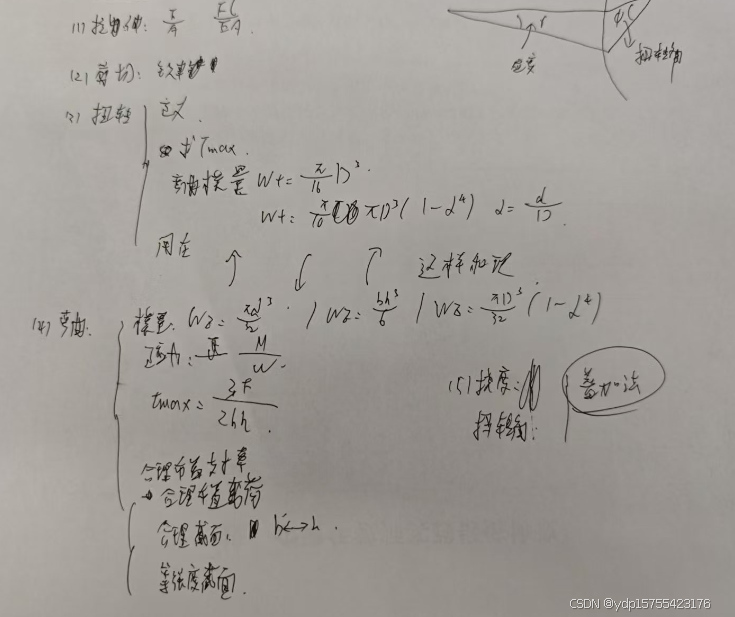 (1) 拉伸: F/A FL/EA.
(2) 剪切:
(3) 扭转 定义
求 Tmax.
弯曲模量 Wt = π/16 D³.
Wt = πD³(1-α⁴) α = d/D.
用在
这样出现.
(4) 弯曲: 模量: Wz = πd³/32 / Wz = bh³/6 / Wz = πD³/32 (1-α⁴)
应力: M/W.
τmax = 3F/2bh.
(5) 挠度:
叠加法
扭转角:
合理布置支座
合理布置载荷
合理截面: b↔h.
等强度截面.
扭转角
CSDN @ydp15755423176